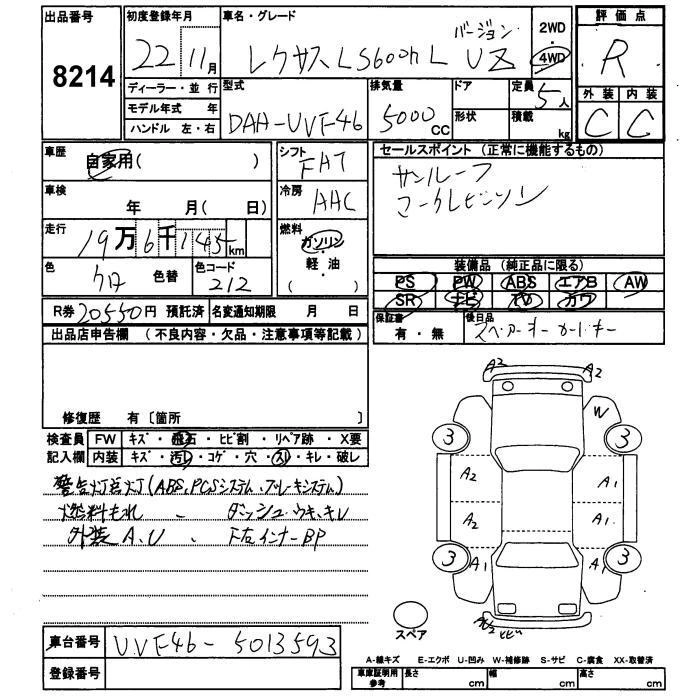 出品番号
8214
初度登録年月
22 11月
車名・グレード
レクサス LS600h L バージョン UZ
2WD
・
4WD
評価点
R
外装 内装
C C
ディーラー・並 行
モデル年式 年
ハンドル 左・右
型式
DAA-UVF46
排気量
5000 CC
ドア
形状
定員
5人
積載
kg
車歴
自家用( )
シフト
FAT
セールスポイント (正常に機能するもの)
サンルーフ
マークレビンソン
車検
年 月( 日)
冷房
AAC
走行
19万6千145km
燃料
ガソリン
軽・油
( )
色
クロ
色替
色コード
212
装備品 (純正品に限る)
PS PW ABS エアB AW
SR ナビ TV カワ
R券 20550円 預託済
名変通知期限 月 日
保証書
有 ・ 無
後日品
スペアーキー カードキー
出品店申告欄 (不良内容・欠品・注意事項等記載)
修復歴 有〔箇所 〕
検査員
記入欄
FW キズ・飛石・ヒビ割・リペア跡・X要
内装 キズ・汚レ・コゲ・穴・スレ・キレ・破レ
警告灯点灯(ABS,PCSシステム、ブレーキシステム)
燃料もれ 、 ダッシュウキ、キレ
外装 A、U 、 F左インナーBP
A2 A2
W
3 3
A2 A1
A2 A1
3 A1 A1 3
ヒビ
スペア
車台番号
UVF46-5013593
登録番号
A-線キズ E-エクボ U-凹み W-補修跡 S-サビ C-腐食 XX-取替済
車庫証明用
参考
長さ cm
幅 cm
高さ cm